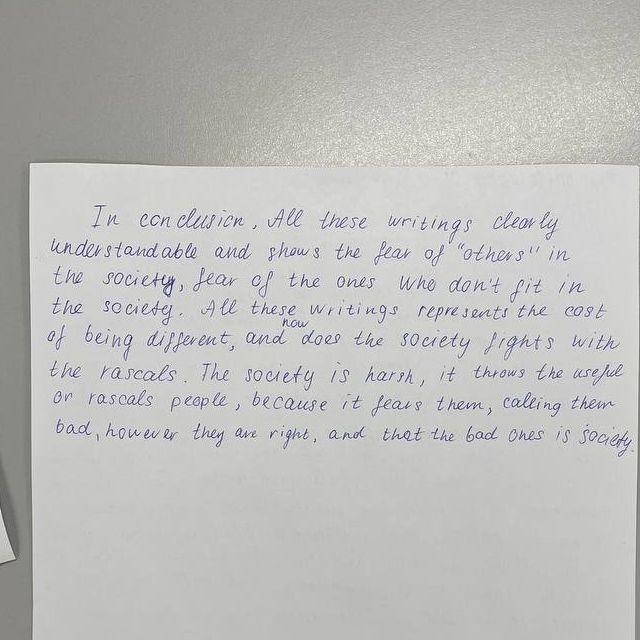 In conclusion, All these writings clearly
understandable and shows the fear of "others" in
the society, fear of the ones who don't fit in
the society. All these writings represents the cost
of being different, and how does the society fights with
the rascals. The society is harsh, it throws the useful
or rascals people, because it fears them, calling them
bad, however they are right, and that the bad ones is society.